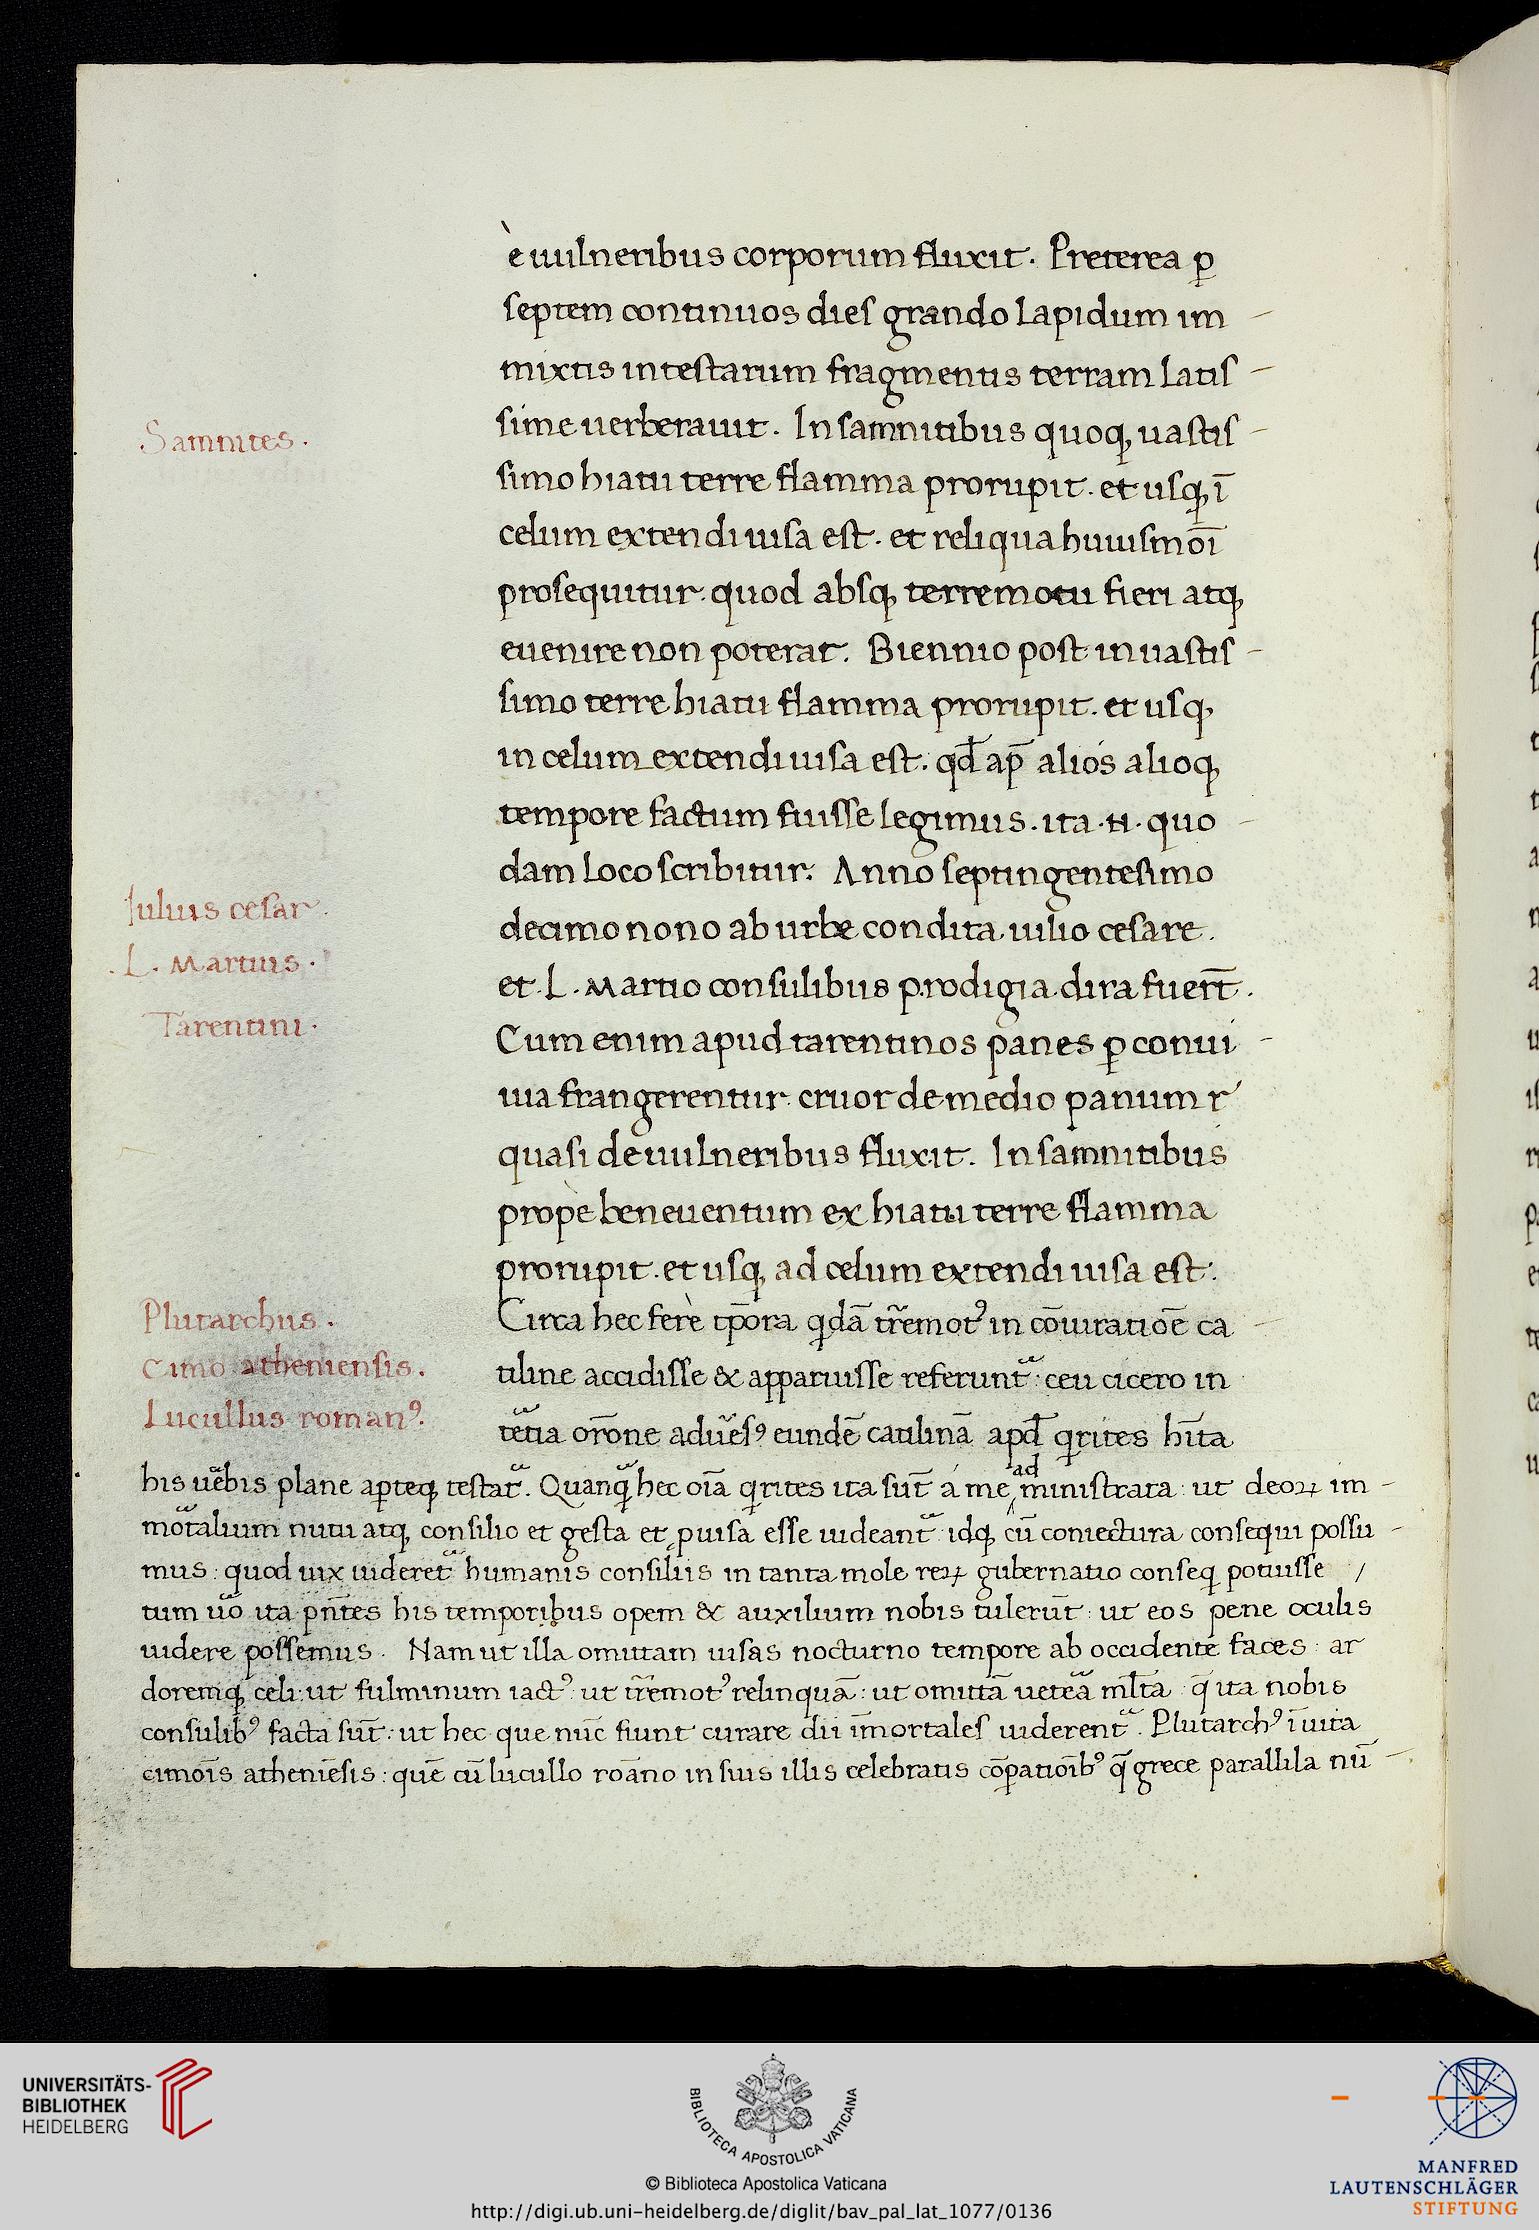 è uulneribus corporum fluxit. Preterea ꝑ
septem continuos dies grando lapidum im
mixtis in testarum fragmentis terram latis
sime uerberauit. In samnitibus quoqꝫ uastis
Samnites.
simo hiatu terre flamma prorupit. et usqꝫ ī
celum extendi uisa est. et reliqua huiusmōi
prosequitur. quod absqꝫ terremotu fieri atqꝫ
euenire non poterat. Biennio post in uastis
simo terre hiatu flamma prorupit. et usqꝫ
in celum extendi uisa est. qd̄ ap̄ alios alioqꝫ
tempore factum fuisse legimus. ita .n. quo
dam loco scribitur. Anno septingentesimo
Iulius cesar.
decimo nono ab urbe condita iulio cesare.
.L. Martius.
et .L. Martio consulibus prodigia dira fuer̄t.
Tarentini.
Cum enim apud tarentinos panes ꝑ conui
uia frangerentur cruor de medio panum r
quasi de uulneribus fluxit. In samnitibus
propè beneuentum ex hiatu terre flamma
prorupit. et usqꝫ ad celum extendi uisa est.
Plutarchus.
Circa hec ferè tp̄ora qdā tr̄emotꝰ in cōiuratiōe ca
Cimo atheniensis.
tiline accidisse & apparuisse referunt᷑: ceu cicero in
Lucullus romanꝰ.
t᷑tia or̄one adu᷑sꝰ eundē catilinā apd̄ qrites hīta
his u᷑bis plane aꝑteqꝫ testat᷑. Quanq̄ hec oīa qrites ita sūt á me ad ministrata: ut deoꝝ im
mo᷑talium nutu atqꝫ consilio et gesta et ꝓuisa esse uideant᷑ idqꝫ cū coniectura consequi possu
mus: quod uix uideret᷑ humanis consiliis in tanta mole reꝝ gubernatio conseq potuisse /
tum u᷑o ita pn̄tes his temporibus opem & auxilium nobis tulerūt: ut eos pene oculis
uidere possemus. Nam ut illa omittam uisas nocturno tempore ab occidente faces: ar
doremqꝫ celi: ut fulminum iactꝰ: ut tr̄emotꝰ relinquā: ut omittā uete᷑a ml̄ta q̄ ita nobis
consulibꝰ facta sūt: ut hec que nūc fiunt curare dii īmortales uiderent᷑. Plutarchꝰ ī uita
cimoīs atheniēsis: quē cū lucullo roāno in suis illis celebratis cōꝑatioībꝰ q̄ grece parallila nū
UNIVERSITÄTS-
BIBLIOTHEK
HEIDELBERG
BIBLIOTECA APOSTOLICA VATICANA
© Biblioteca Apostolica Vaticana
http://digi.ub.uni-heidelberg.de/diglit/bav_pal_lat_1077/0136
MANFRED
LAUTENSCHLÄGER
STIFTUNG